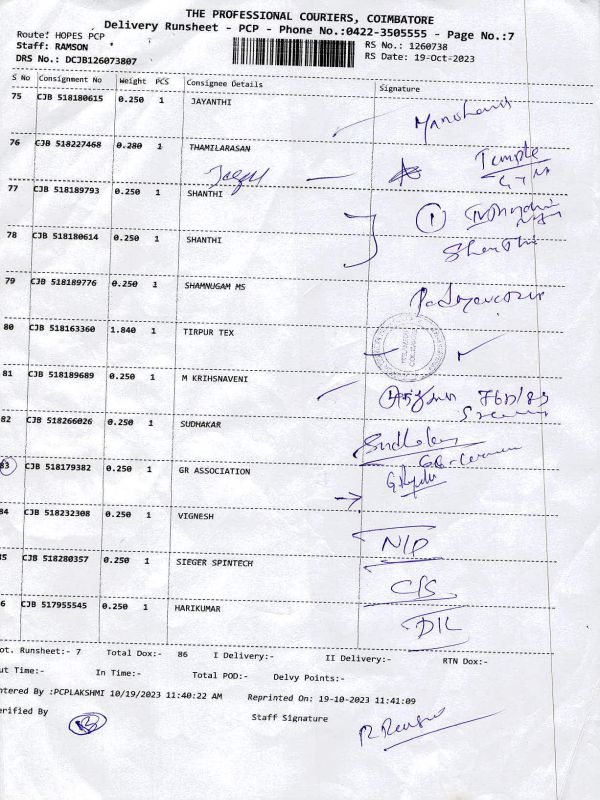 THE PROFESSIONAL COURIERS, COIMBATORE
Delivery Runsheet - PCP - Phone No.:0422-3505555 - Page No.:7
Route: HOPES PCP
RS No.: 1260738
Staff: RAMSON
RS Date: 19-Oct-2023
DRS No.: DCJB126073807
S No Consignment No Weight PCS Consignee Details Signature
75 CJB 518180615 0.250 1 JAYANTHI
76 CJB 518227468 0.280 1 THAMILARASAN Temple
77 CJB 518189793 0.250 1 SHANTHI 1
78 CJB 518180614 0.250 1 SHANTHI Shanthi
79 CJB 518189776 0.250 1 SHAMNUGAM MS
80 CJB 518163360 1.840 1 TIRPUR TEX
81 CJB 518189689 0.250 1 M KRIHSNAVENI
82 CJB 518266026 0.250 1 SUDHAKAR
83 CJB 518179382 0.250 1 GR ASSOCIATION
84 CJB 518232308 0.250 1 VIGNESH N/P
5 CJB 518280357 0.250 1 SIEGER SPINTECH C/S
6 CJB 517955545 0.250 1 HARIKUMAR D/L
ot. Runsheet:- 7 Total Dox:- 86 I Delivery:- II Delivery:- RTN Dox:-
ut Time:- In Time:- Total POD:- Delvy Points:-
ntered By :PCPLAKSHMI 10/19/2023 11:40:22 AM Reprinted On: 19-10-2023 11:41:09
erified By Staff Signature